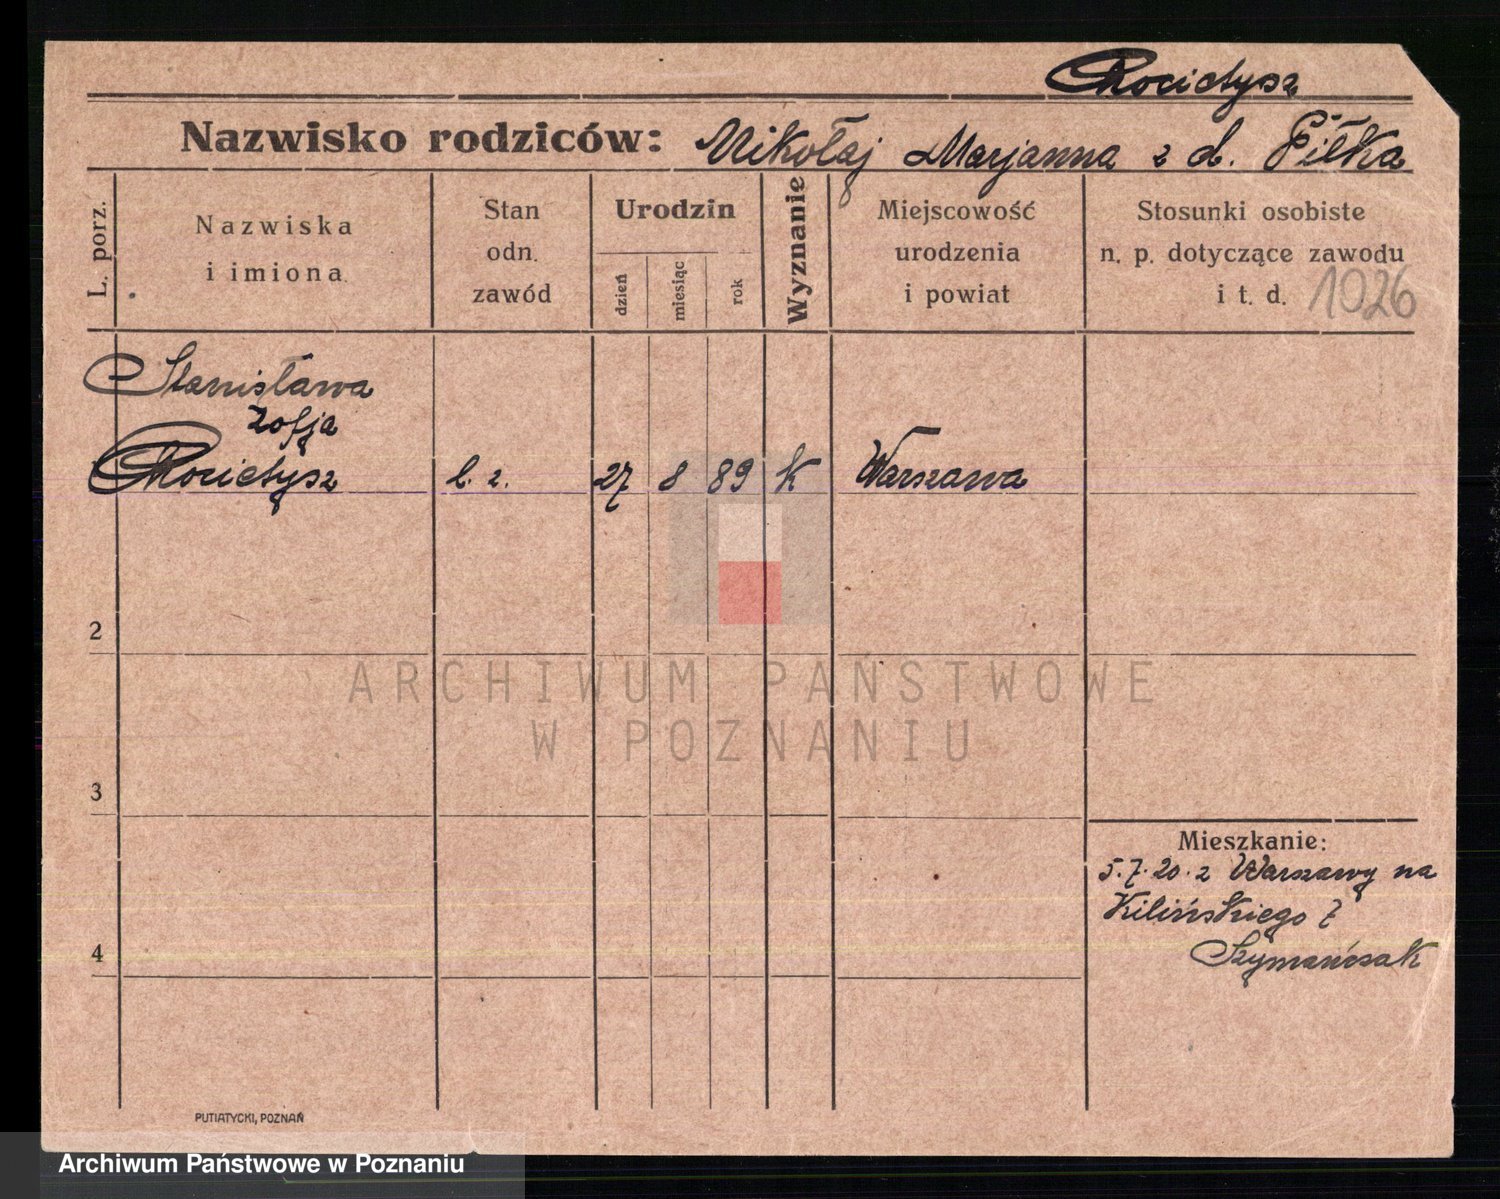 Rocietysz
Nazwisko rodziców: Mikołaj Marjanna z d. Piłka
L. porz.
Nazwiska
i imiona
Stan
odn.
zawód
Urodzin
dzień
miesiąc
rok
Wyznanie
Miejscowość
urodzenia
i powiat
Stosunki osobiste
n. p. dotyczące zawodu
i t. d. 1026
Stanisława
Zofja
Rocietysz 27 8 89 k Warszawa
2
3
4
Mieszkanie:
5.7.20 z Warszawy na
Kilińskiego 7
Szymańczak
PUTIATYCKI, POZNAŃ
ARCHIWUM PAŃSTWOWE
W POZNANIU
Archiwum Państwowe w Poznaniu